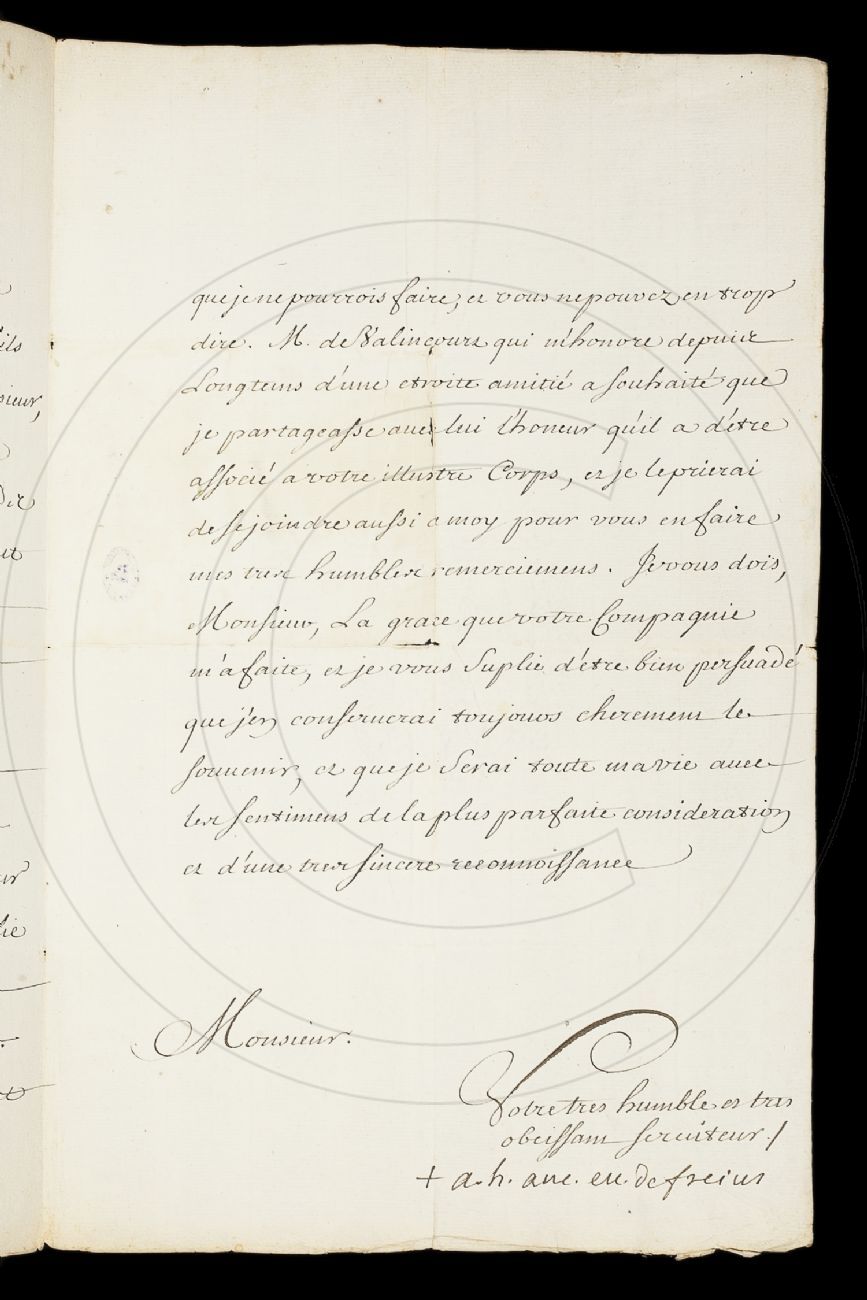 que je ne pourrois faire, et vous ne pouvez en trop
dire. M. de Valincourt qui m'honore depuis
Longtems d'une etroite amitié a souhaité que
je partageasse avec lui l'honeur qu'il a d'être
associé a votre illustre Corps, et je le prierai
de se joindre aussi a moy pour vous en faire
mes tres humbles remerciemens. Je vous dois,
Monsieur, La grace que votre Compagnie
m'a faite, et je vous Suplie d'être bien persuadé
que j'en conserverai toujours cherement le
souvenir, et que je Serai toute ma vie avec
les sentimens de la plus parfaite consideration
et d'une tres sincere reconnoissance
Monsieur.
Votre tres humble et tres
obeissant serviteur ./
+ a. h. anc. ev. de freius